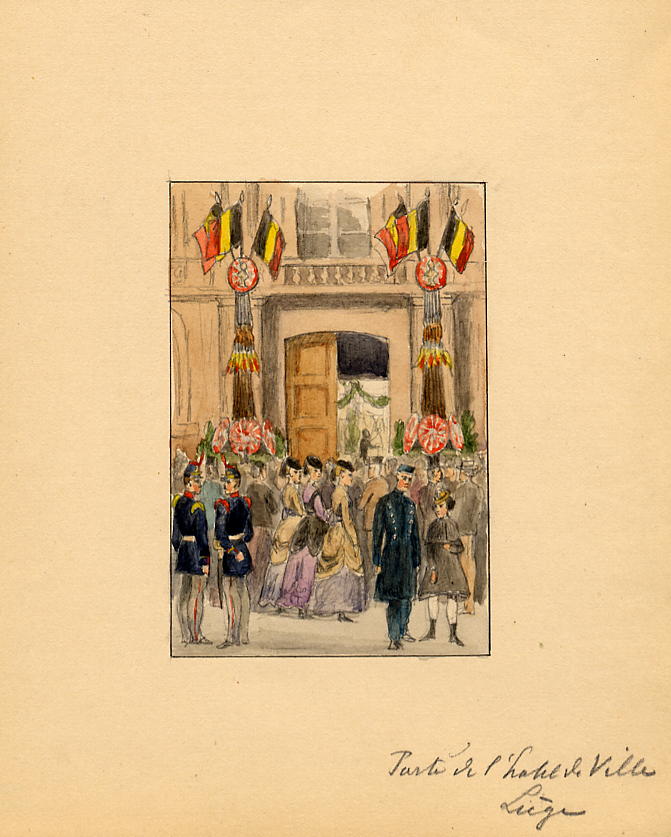 Porte de l'hotel de Ville
Liège